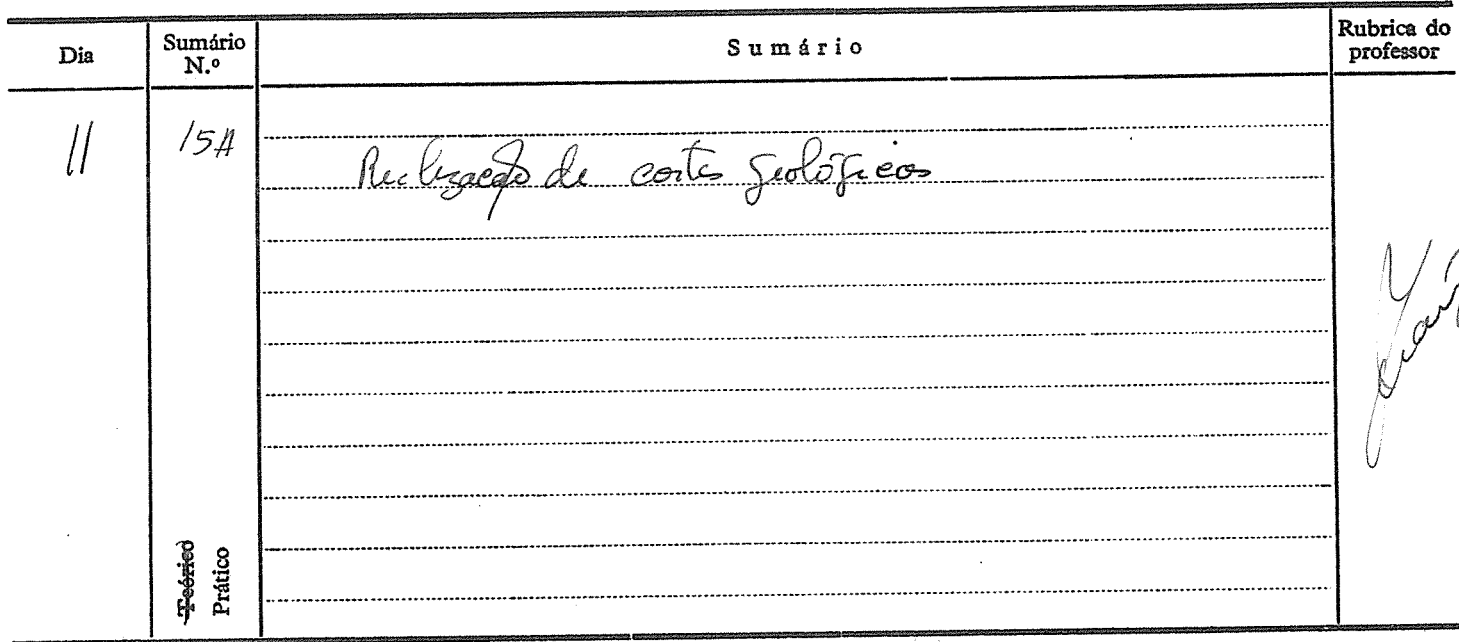 Dia
Sumário N.º
Sumário
Rubrica do professor
11
15A
Realização de cortes geológicos
Teórico
Prático